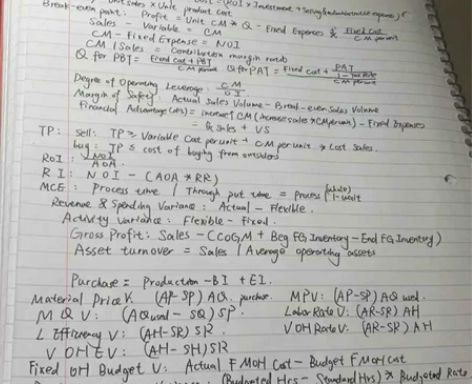 Unit Sales × Unit product cost = (ROI × Investment + Selling & administrative expenses)
Break-even point: Profit = Unit CM * Q - Fixed Expenses & Fixed Cost / CM per unit
Sales - Variable = CM
CM - Fixed Expense = NOI
CM / Sales = Contribution margin ratio
Q for PBT = Fixed Cost + PBT / CM per unit Q for PAT = Fixed cost + PAT / 1 - Tax Rate / CM per unit
Degree of Operating Leverage: CM / OI
Margin of Safety: Actual Sales Volume - Break-even Sales Volume
Financial Advantage = increase CM (increase sales * CM per unit) - Fixed Expenses
= & Sales + VS
TP: Sell: TP ≥ Variable Cost per unit + CM per unit * Lost Sales.
buy: TP ≤ cost of buying from outsiders
ROI: NOI / AOA.
RI: NOI - (AOA * RR)
MCE: Process time / Through put time = process / 1 - wait
Revenue & Spending Variance: Actual - Flexible.
Activity Variance: Flexible - Fixed.
Gross Profit: Sales - (COGM + Beg FG Inventory - End FG Inventory)
Asset turnover = Sales / Average operating assets
Purchase = Production - BI + EI.
Material Price V. (AP-SP) AQ purchase. MPV: (AP-SP) AQ used.
M Q V: (AQused - SQ) SP. Labor Rate V: (AR-SR) AH
L Efficiency V: (AH-SR) SR V OH Rate V: (AR-SR) AH
V OH E V: (AH-SH) SR
Fixed OH Budget V: Actual FMOH Cost - Budget FMOH Cost
(Budgeted Hrs - Standard Hrs) * Budgeted Rate